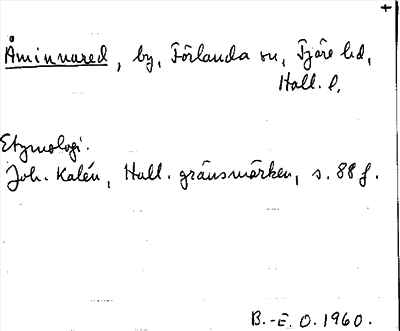 +
Åminnared, by, Förlanda sn, Fjäre hd,
Hall. l.
Etymologi.
Joh. Kalén, Hall. gränsmärken, s. 88 f.
B.-E. O. 1960.